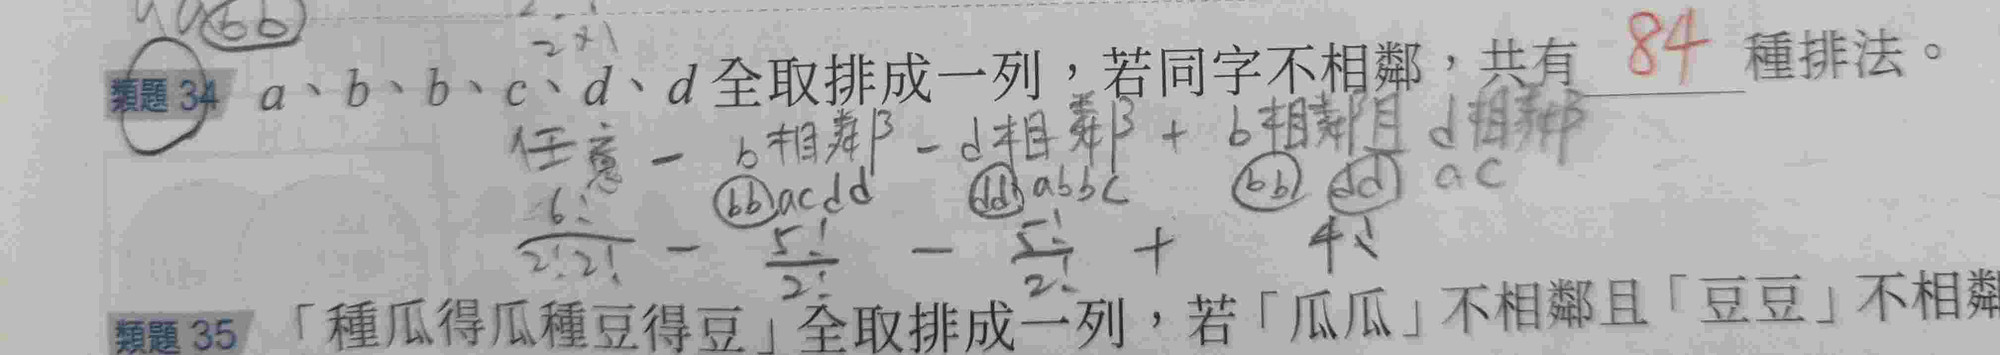 bb
2×1
類題 34 a、b、b、c、d、d 全取排成一列，若同字不相鄰，共有 84 種排法。
任意 - b相鄰 - d相鄰 + b相鄰且d相鄰
bb acdd dd abbc bb dd ac
6!/2!2! - 5!/2! - 5!/2! + 4!
類題 35 「種瓜得瓜種豆得豆」全取排成一列，若「瓜瓜」不相鄰且「豆豆」不相鄰